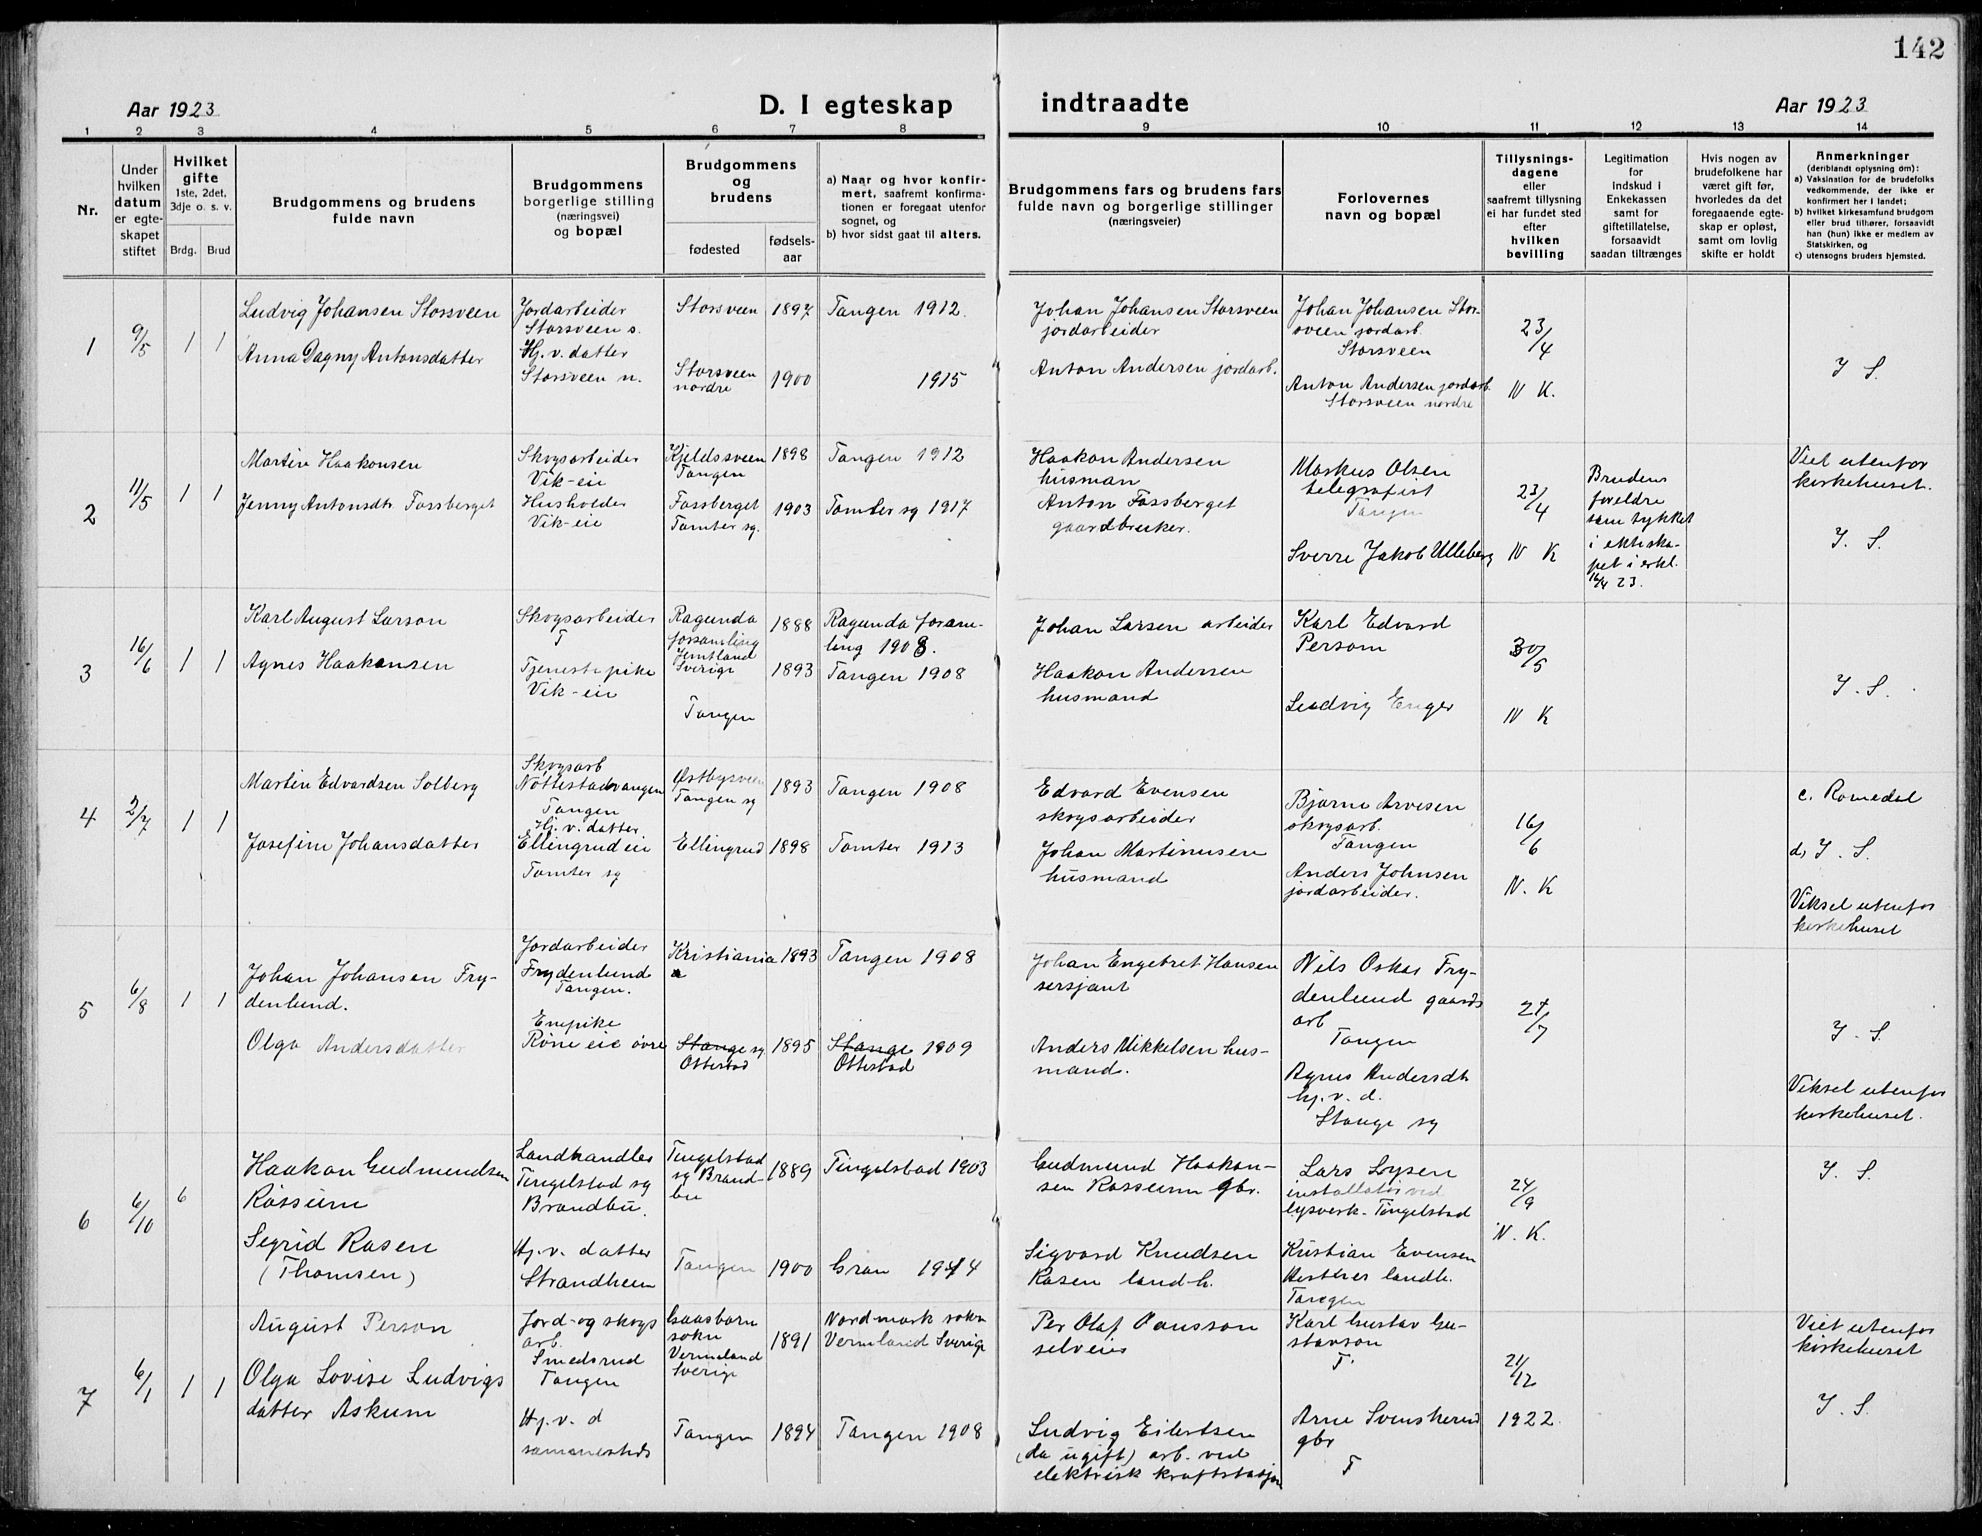 142
Aar 1923
D. I egteskap
indtraadte
Aar 1923
1 2 3 4 5 6 7 8 9 10 11 12 13 14
Nr.
Under
hvilken
datum
er egte-
skapet
stiftet
Hvilket
gifte
1ste, 2det,
3dje o. s. v.
Brdg. Brud
Brudgommens og brudens
fulde navn
Brudgommens
borgerlige stilling
(næringsvei)
og bopæl
Brudgommens
og
brudens
fødested
fødsels-
aar
a) Naar og hvor konfir-
mert, saafremt konfirma-
tionen er foregaat utenfor
sognet, og
b) hvor sidst gaat til alters.
Brudgommens fars og brudens fars
fulde navn og borgerlige stillinger
(næringsveier)
Forlovernes
navn og bopæl
Tillysnings-
dagene
eller
saafremt tillysning
ei har fundet sted
efter
hvilken
bevilling
Legitimation
for
indskud i
Enkekassen
samt for
giftetillatelse,
forsaavidt
saadan tiltrænges
Hvis nogen av
brudefolkene har
været gift før,
hvorledes da det
foregaaende egte-
skap er opløst,
samt om lovlig
skifte er holdt
Anmerkninger
(deriblandt oplysning om):
a) Vaksination for de brudefolks
vedkommende, der ikke er
konfirmert her i landet;
b) hvilket kirkesamfund brudgom
eller brud tilhører, forsaavidt
han (hun) ikke er medlem av
Statskirken, og
c) utensogns bruders hjemsted.
1
9/5
1 1
Ludvig Johansen Storsveen
Anna Dagny Antonsdatter
Jordarbeider
Storsveen s.
Hj. v. datter
Storsveen n.
Storsveen 1897
Storsveen
nordre 1900
Tangen 1912.
1915
Johan Johansen Storsveen
jordarbeider
Anton Andersen jordarb.
Johan Johansen Stor-
sveen jordarb.
Storsveen
Anton Andersen jordarb.
Storsveen nordre
23/4
N K.
I S.
2
11/5
1 1
Martin Haakonsen
Jenny Antonsdtr Fossberget
Skogsarbeider
Vik-eie
Husholder
Vik-eie
Kjeldssveen
Tangen 1898
Fossberget
Tomter sg. 1903
Tangen 1912
Tomter sg 1917
Haakon Andersen
husman
Anton Fossberget
gaardbruker.
Markus Olsen
telegrafist
Tangen
Sverre Jakob Ulleberg
23/4
N K
Brudens
foreldre
samtykket
i ektiska-
pet i erkl.
16/4 23.
Viet utenfor
kirkehuset.
I. S.
3
16/6
1 1
Karl August Larson
Agnes Haakonsen
Skogsarbeider
T
Tjenestepike
Vik-eie
Ragunda
forsamling
Jemtland
Sverige
1888
1893
Tangen
Ragunda foram-
ling 1903.
Tangen 1908
Johan Larsen arbeider
Haakon Andersen
husmand
Karl Edvard
Persom
Ludvig Enger
30/5
N K
I. S.
4
2/7
1 1
Martin Edvardsen Solberg
Josefine Johansdatter
Skogsarb
Nottestadvangen
Tangen
Hj. v. datter
Ellingrud eie
Tomter sg
Østbysveen
Tangen sg 1893
Ellingrud 1898
Tangen 1908
Tomter 1913
Edvard Evensen
skogsarbeider
Johan Martinusen
husmand
Bjarne Arvesen
skogsarb.
Tangen
Anders Johnsen
jordarbeider.
16/6
N. K
c. Romedal
d, I. S.
Viksel utenfor
kirkehuset
5
6/8
1 1
Johan Johansen Fry-
denlund.
Olga Andersdatter
Jordarbeider
Frydenlund
Tangen.
Enepike
Røne eie øvre
Kristiania 1893
Stange sg
Ottestad 1895
Tangen 1908
Stange 1909
Ottestad
Johan Engebret Hansen
sersjant
Anders Mikkelsen hus-
mand.
Nils Oskar Fry-
denlund gaards
arb
Tangen
Agnes Andersdtr
hj. v. d.
Stange sg
27/7
I. S.
Viksel utenfor
kirkehuset.
6
6/10
6
Haakon Gudmundsen
Røssum
Sigrid Rosen
(Thomsen)
Landhandler
Tingelstad sg
Brandbu.
Hj. v. datter
Strandheim
Tingelstad
sg Brand-
bu 1889
Tangen 1900
Tingelstad 1903
Gran 1914
Gudmund Haakon-
sen Rossum gbr.
Sigvard Knudsen
Rosen land-h.
Lars Loysen
installatør ved
lysverk. Tingelstad
Kristian Evensen
landh.
Tangen
24/9
N. K.
I. S.
7
6/1
1 1
August Person
Olga Lovise Ludvigs
datter Askum
Jord- og skogs
arb.
Smedsrud
Tangen
Hj. v. d
sammesteds
Gaasborn
sokn
Vermeland
Sverige
1891
Tangen 1894
Nordmark sokn
Vermland Sverige
Tangen 1908
Per Olof Vansson
selveier
Ludvig Eilertsen
(da ugift) arb. ved
elektrisk kraftstasjon
Karl Gustav Gu-
stavson
T.
Arne Svenskerud
gbr
T
21/12
1922.
Viet utenfor
kirkehuset
I. S.